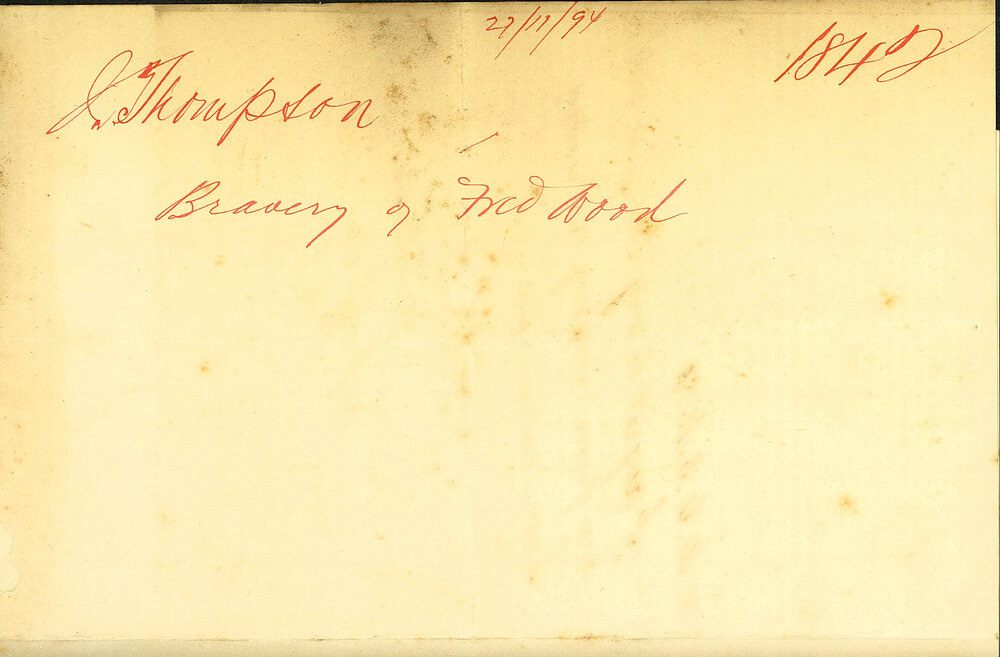 27/11/94
1842
J. Thompson
Bravery of Fred Wood